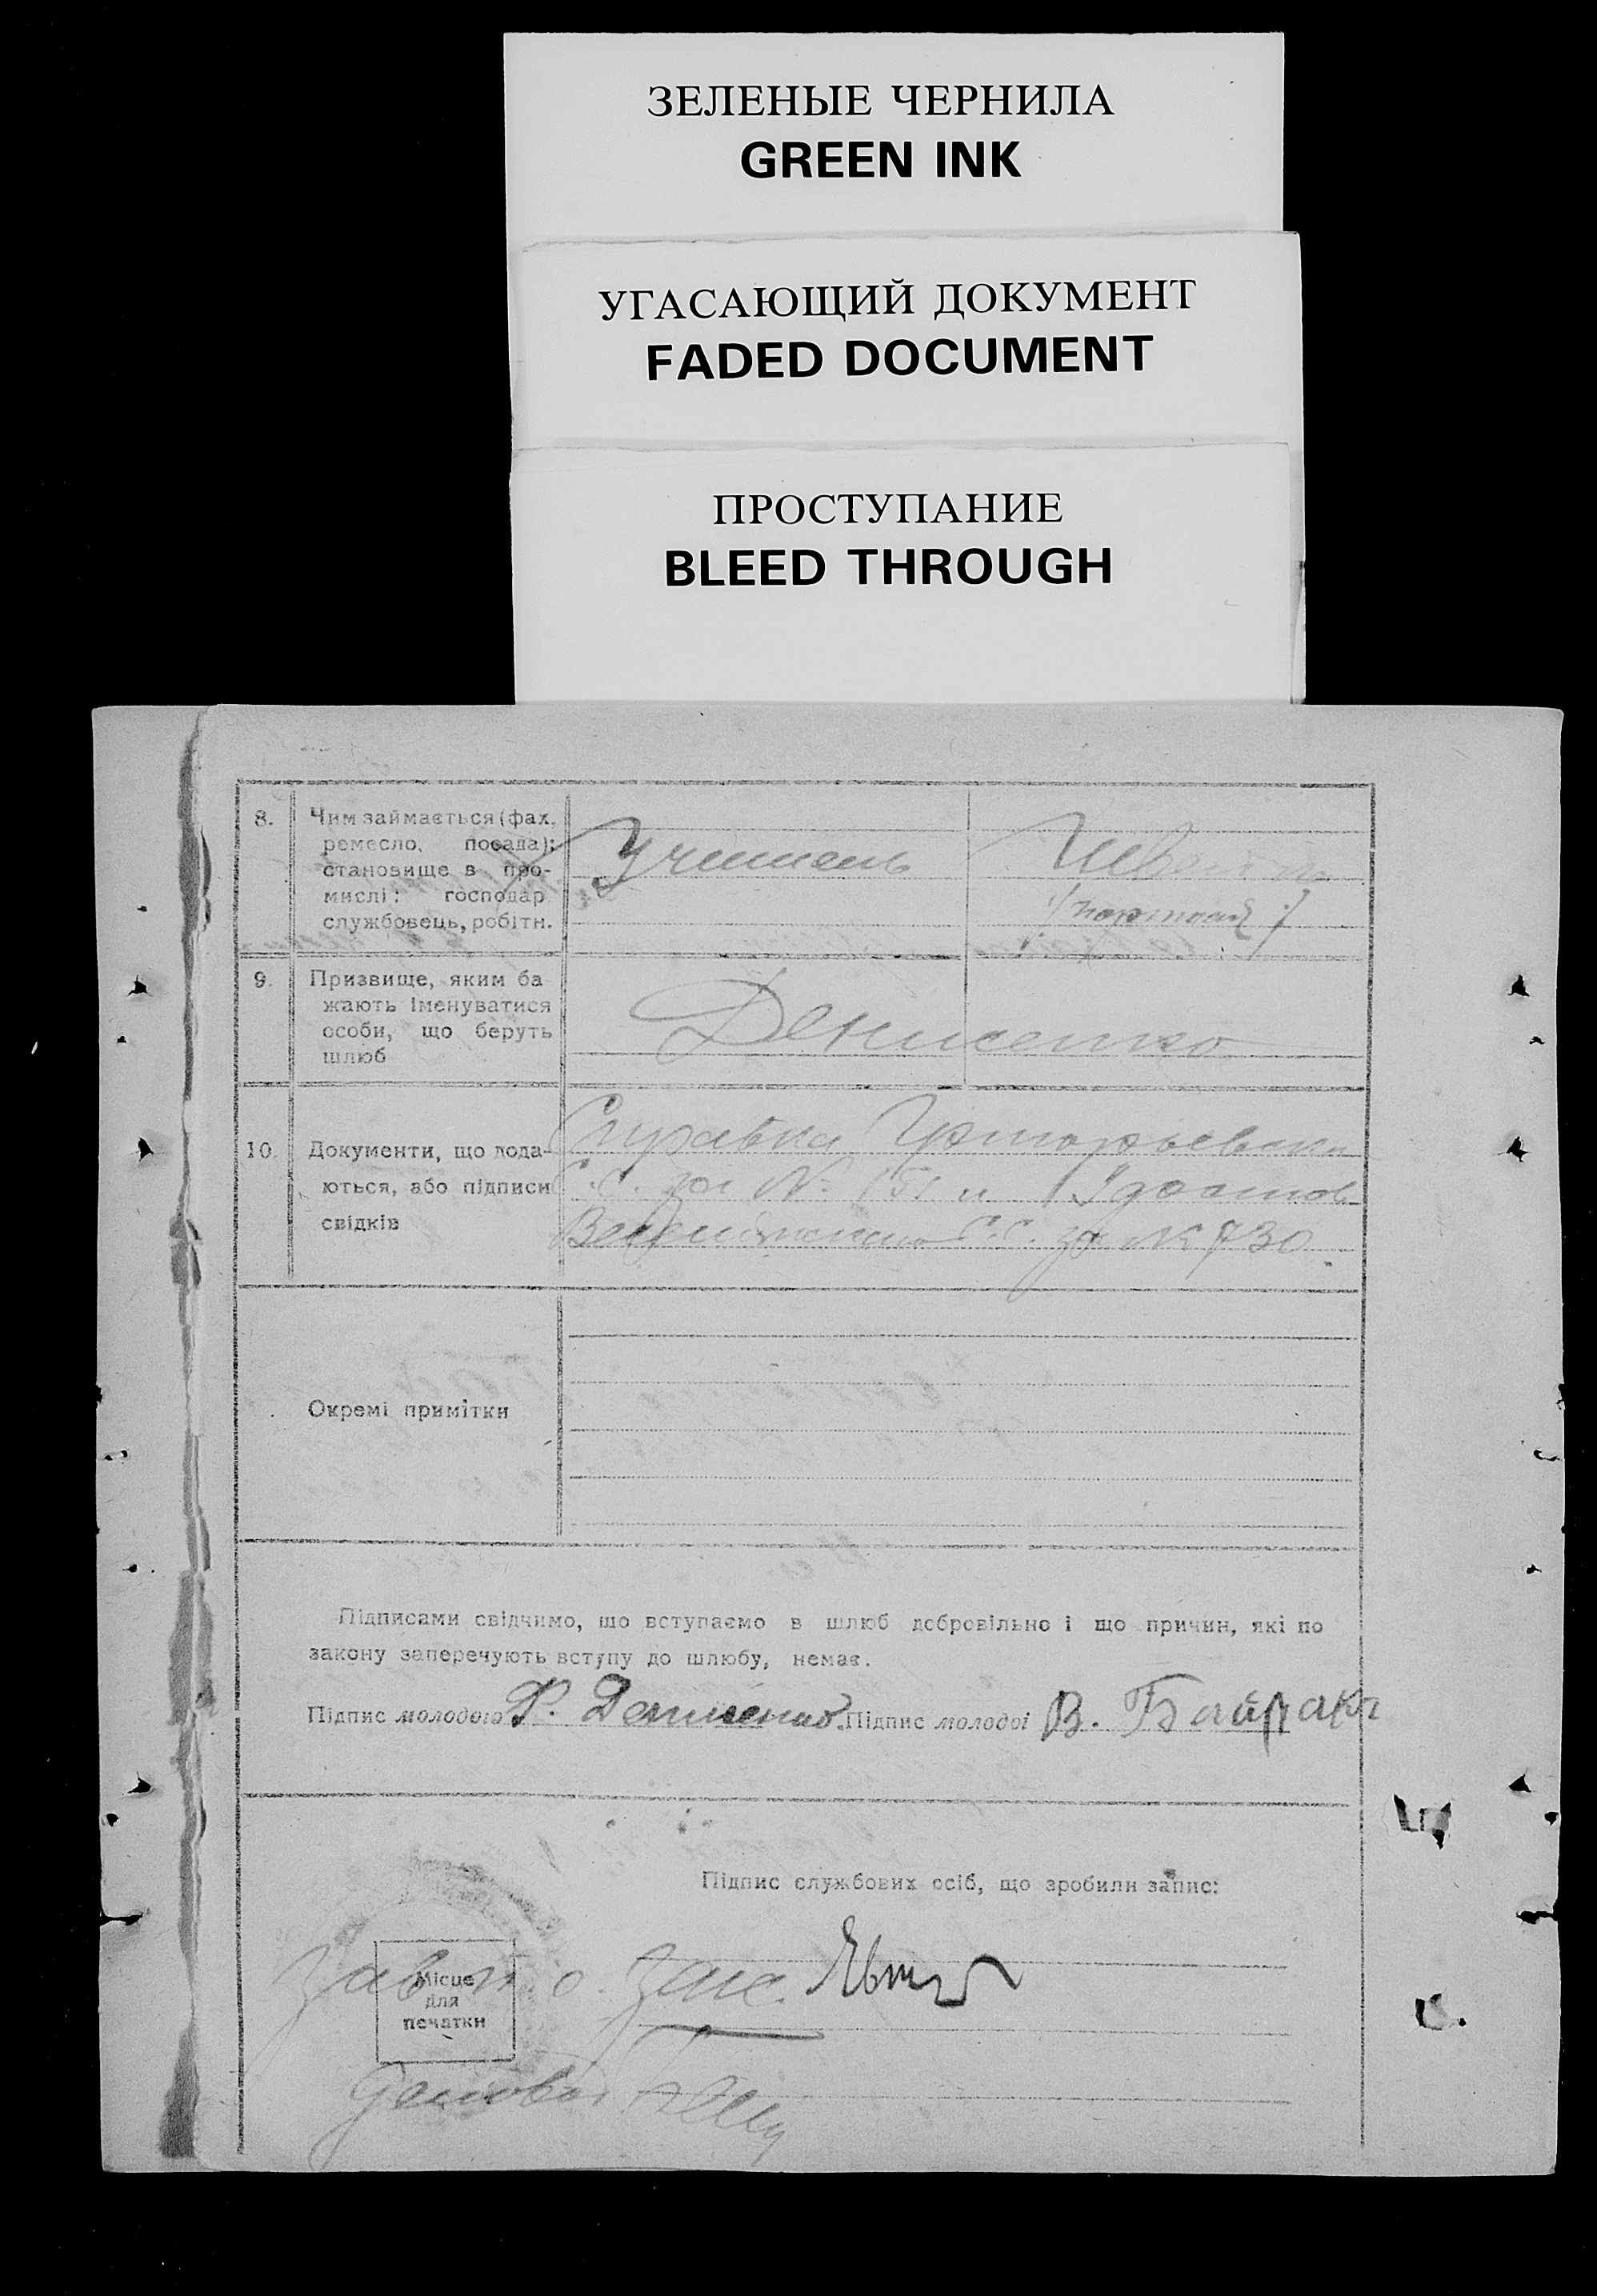 ЗЕЛЕНЫЕ ЧЕРНИЛА
GREEN INK
УГАСАЮЩИЙ ДОКУМЕНТ
FADED DOCUMENT
ПРОСТУПАНИЕ
BLEED THROUGH
8.
Чим займається (фах,
ремесло, посада);
становище в про-
мислі: господар
службовець, робітн.
Учитель
9.
Призвище, яким ба
жають іменуватися
особи, що беруть
шлюб
Денисенко
10.
Документи, що пода-
ються, або підписи
свідків
Справка
С.С. за № 151 и
С.С. за № 730
Окремі примітки
Підписами свідчимо, що вступаємо в шлюб добровільно і що причин, які по
закону заперечують вступу до шлюбу, немає.
Підпис молодого Денисенко. Підпис молодої В. Байрака
Підпис службових осіб, що зробили запис:
Місце
для
печатки